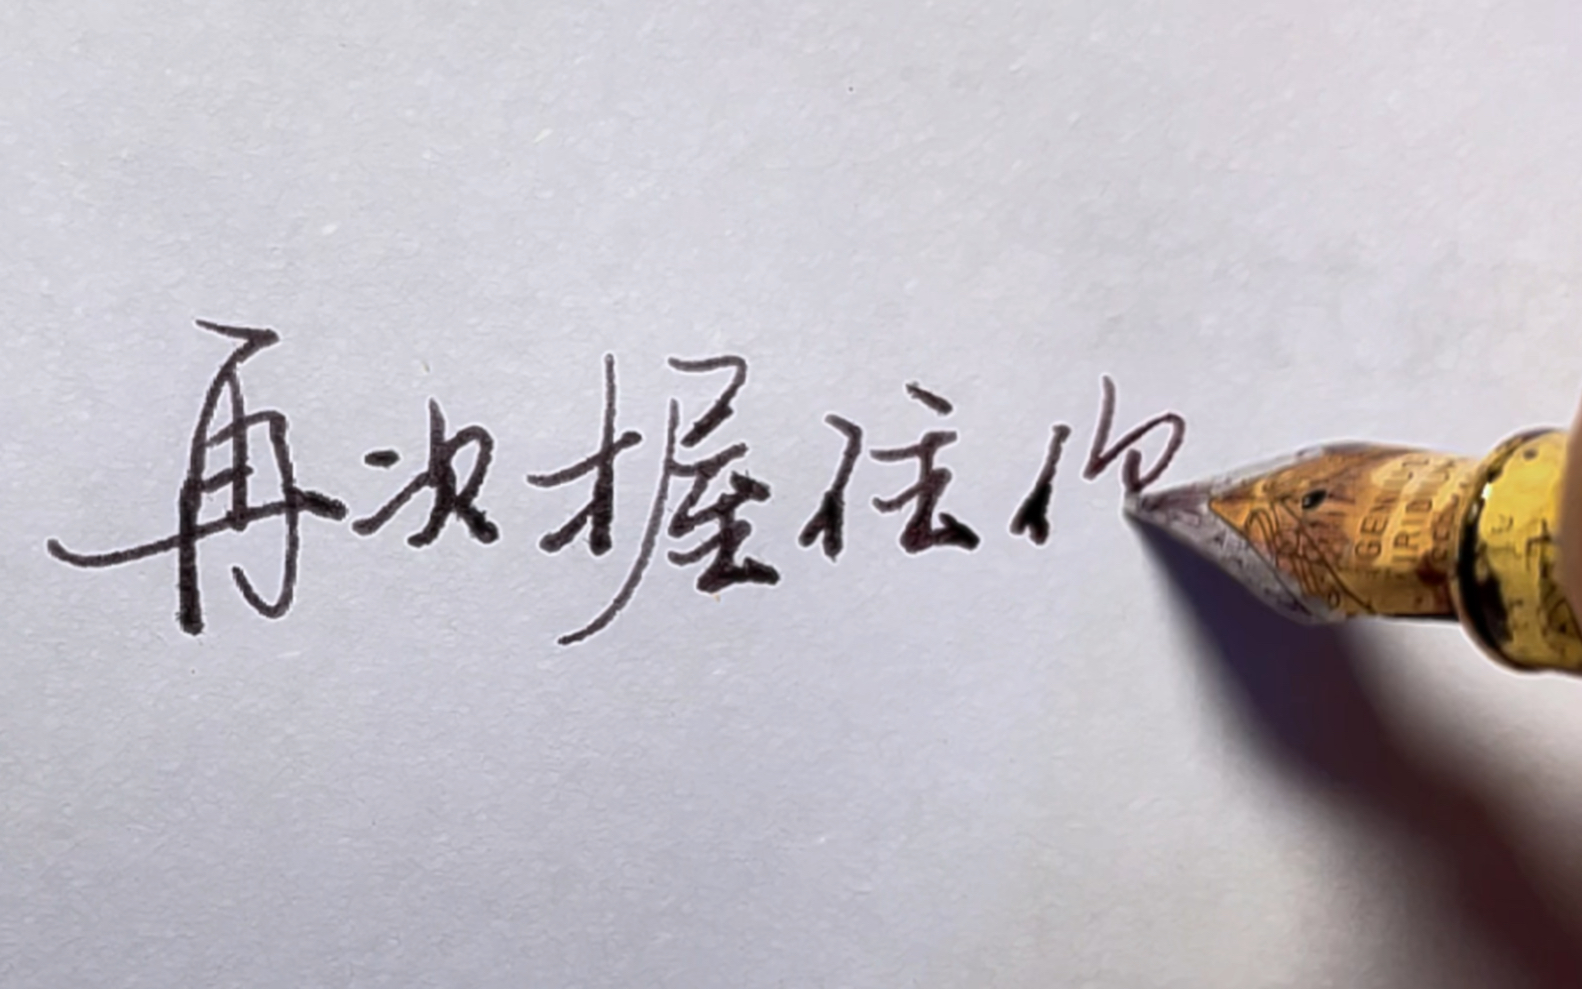 再次握住你
GEN
IRID